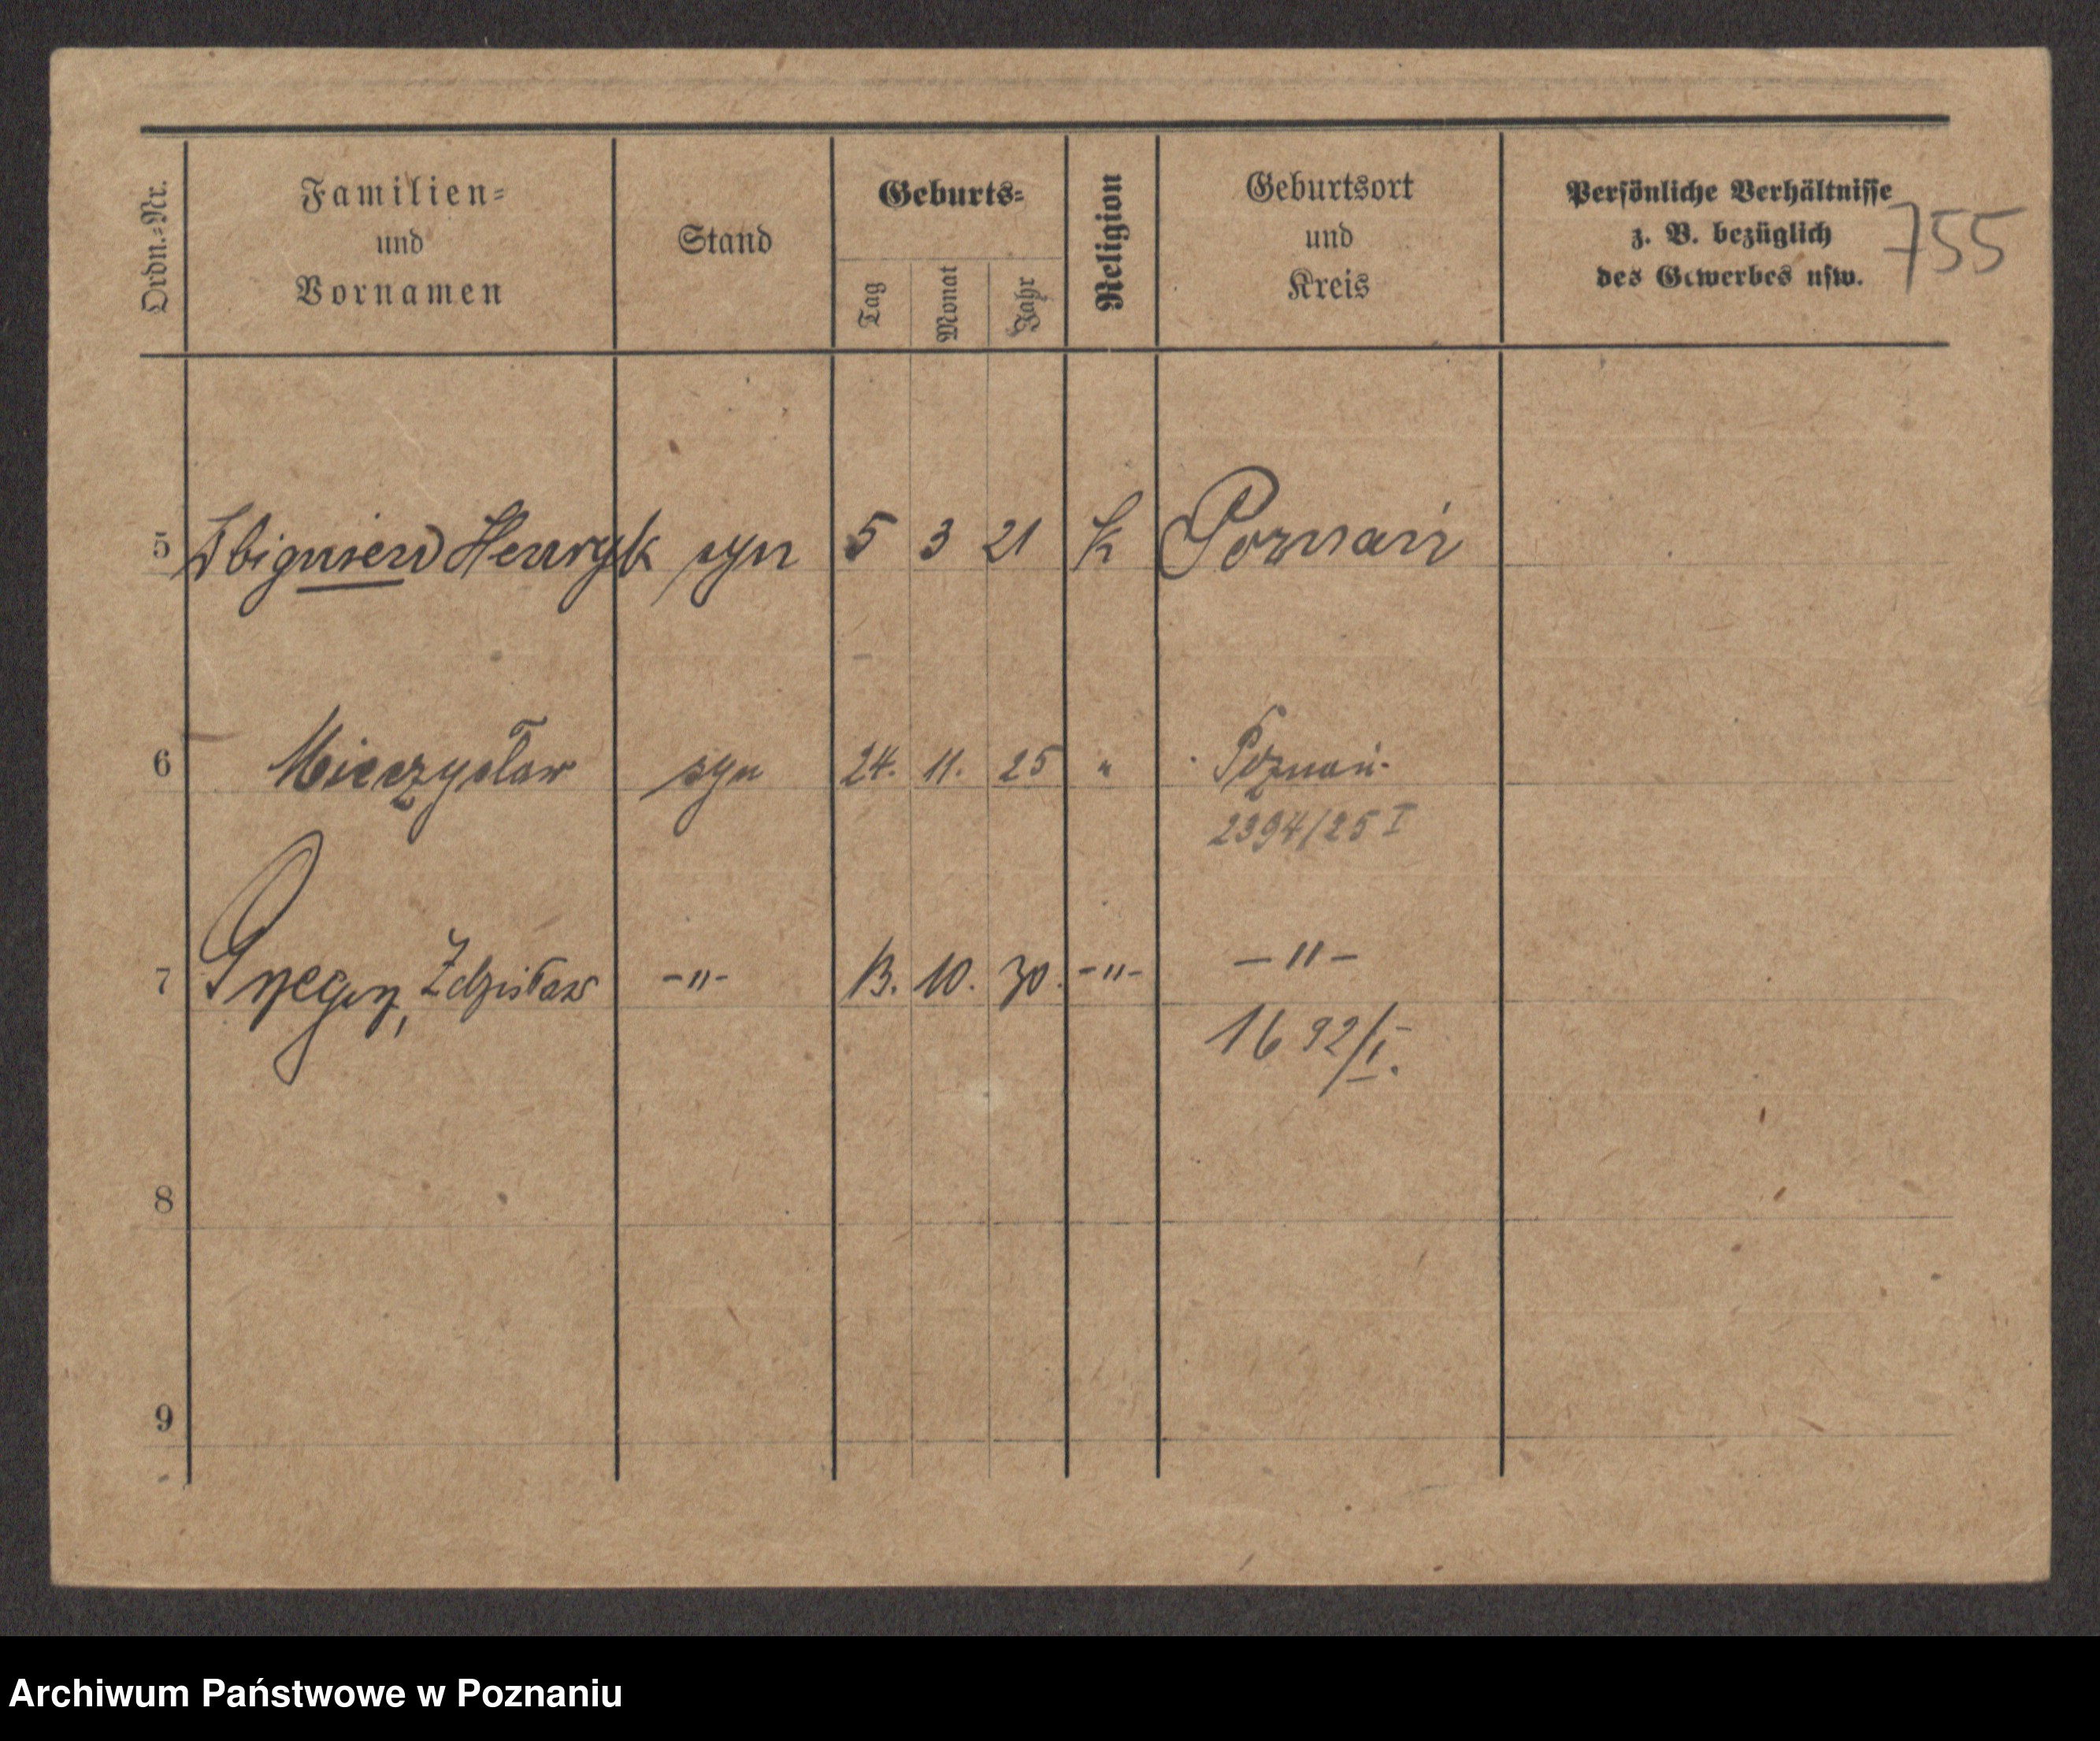 Ordn.-Nr.
Familien-
und
Vornamen
Stand
Geburts-
Tag
Monat
Jahr
Religion
Geburtsort
und
Kreis
Persönliche Verhältnisse
z. B. bezüglich
des Gewerbes usw.
755
5 Zbigniew Henryk syn 5 3 21 K Poznań
6 Mieczysław syn 24. 11. 25 " Poznań.
2394/25 I
7 Zdzisław -"- 13. 10. 30. -"- -"-
1692/I.
8
9
Archiwum Państwowe w Poznaniu